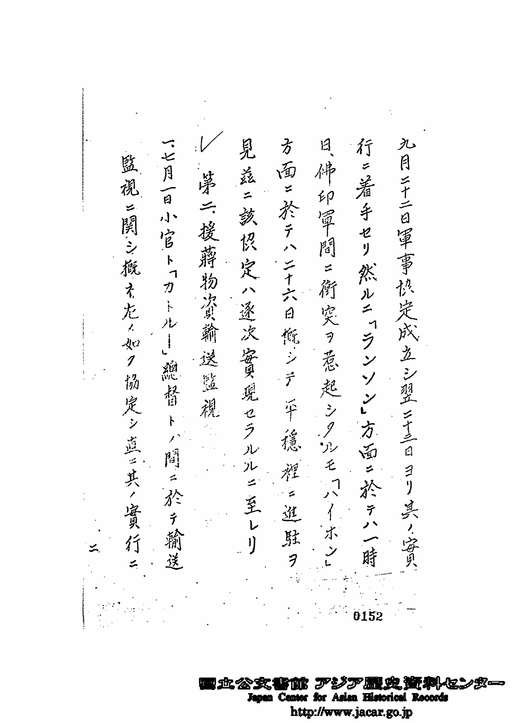 九月二十二日軍事協定成立シ翌二十三日ヨリ其ノ實
行ニ着手セリ然ルニ「ランソン」方面ニ於テハ一時
日、佛印軍間ニ衝突ヲ惹起シタルモ「ハイホン」
方面ニ於テハ二十六日概シテ平穩裡ニ進駐ヲ
見茲ニ該協定ハ逐次實現セラルルニ至レリ
第二、援蔣物資輸送監視
一、七月一日小官ト「カトルー」總督トノ間ニ於テ輸送
監視ニ關シ概ネ左ノ如ク協定シ直ニ其ノ實行ニ
二
0152
国立公文書館 アジア歴史資料センター
Japan Center for Asian Historical Records
http://www.jacar.go.jp